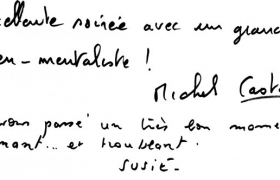 cellente soirée avec un grand
en-mentaliste !
Michel Cast
vous passé un très bon mome
mant... et troublant.
SUSIE-